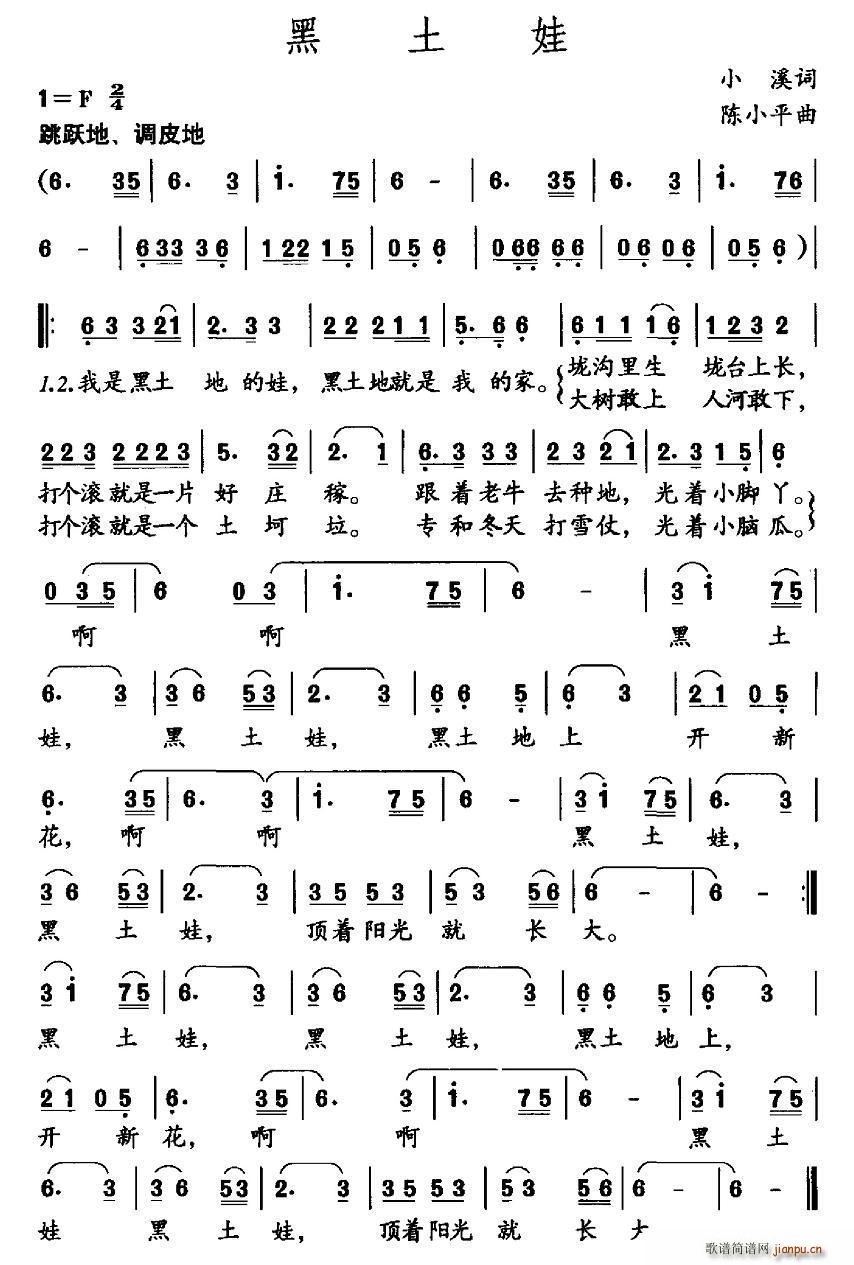 黑土娃
小 溪词
1=F 2/4
陈小平曲
跳跃地、调皮地
(6. 35 | 6. 3 | i. 75 | 6 - | 6. 35 | 6. 3 | i. 76 |
6 - | 633 36 | 122 15 | 05 6 | 066 66 | 06 06 | 05 6 ) |
‖: 6 3 321 | 2. 33 | 22 211 | 5. 6 6 | 611 16 | 123 2 |
1.2.我是黑土 地 的娃，黑土地就是 我 的家。{垅沟里生 垅台上长，
大树敢上 人河敢下，
223 2223 | 5. 32 | 2. 1 | 6. 3 33 | 23 21 | 2. 3 15 | 6
打个滚就是一片 好 庄 稼。 跟 着老牛 去种地，光着小脚 丫。
打个滚就是一个 土 坷 垃。 专 和冬天 打雪仗，光着小脑 瓜。}
0 35 | 6 03 | i. 75 | 6 - | 3 i 75 |
啊 啊 黑 土
6. 3 | 36 53 | 2. 3 | 66 5 | 6 3 | 21 05 |
娃， 黑 土 娃， 黑土 地 上 开 新
6. 35 | 6. 3 | i. 75 | 6 - | 3 i 75 | 6. 3 |
花， 啊 啊 黑 土 娃，
36 53 | 2. 3 | 35 53 | 53 56 | 6 - | 6 - :‖
黑 土 娃， 顶着阳光 就 长 大。
3 i 75 | 6. 3 | 36 53 | 2. 3 | 66 5 | 6 3 |
黑 土 娃， 黑 土 娃， 黑土 地 上，
21 05 | 6. 35 | 6. 3 | i. 75 | 6 - | 3 i 75 |
开 新 花， 啊 啊 黑 土
6. 3 | 36 53 | 2. 3 | 35 53 | 53 56 | 6 - | 6 - ‖
娃 黑 土 娃， 顶着阳光 就 长
歌谱简谱网 jianpu.cn